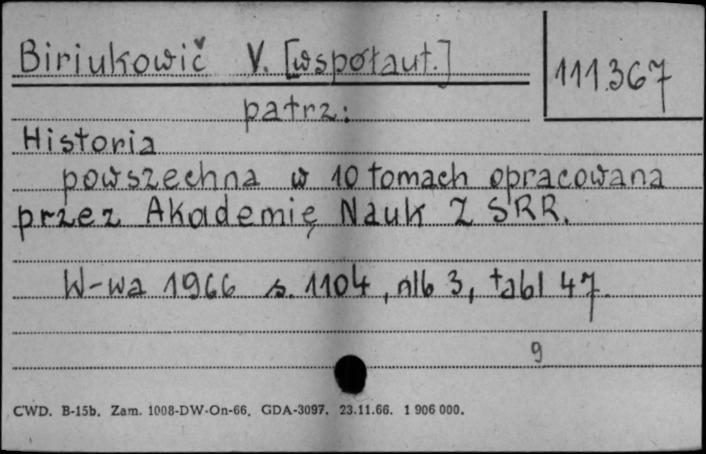 Biriukowič V. [współaut.]
111.367
patrz:
Historia
powszechna w 10 tomach opracowana
przez Akademię Nauk ZSRR.
W-wa 1966 s. 1104, nlb 3, tabl 47.
9
CWD. B-15b. Zam. 1008-DW-On-66. GDA-3097. 23.11.66. 1 906 000.